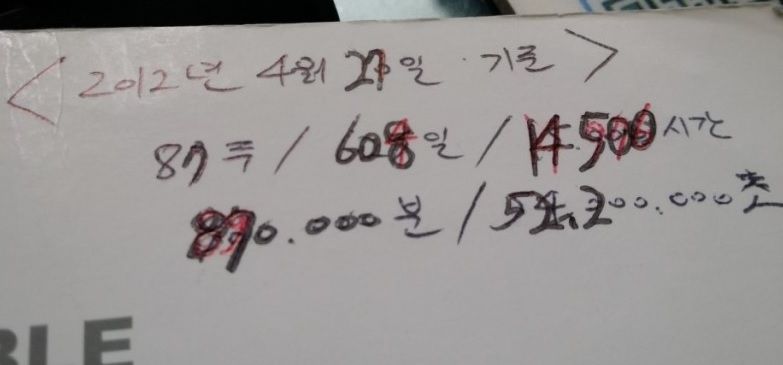 < 2012년 4월 기준 >
87주 / 608일 / 14.500시간
870.000분 / 52.200.000초
BLE